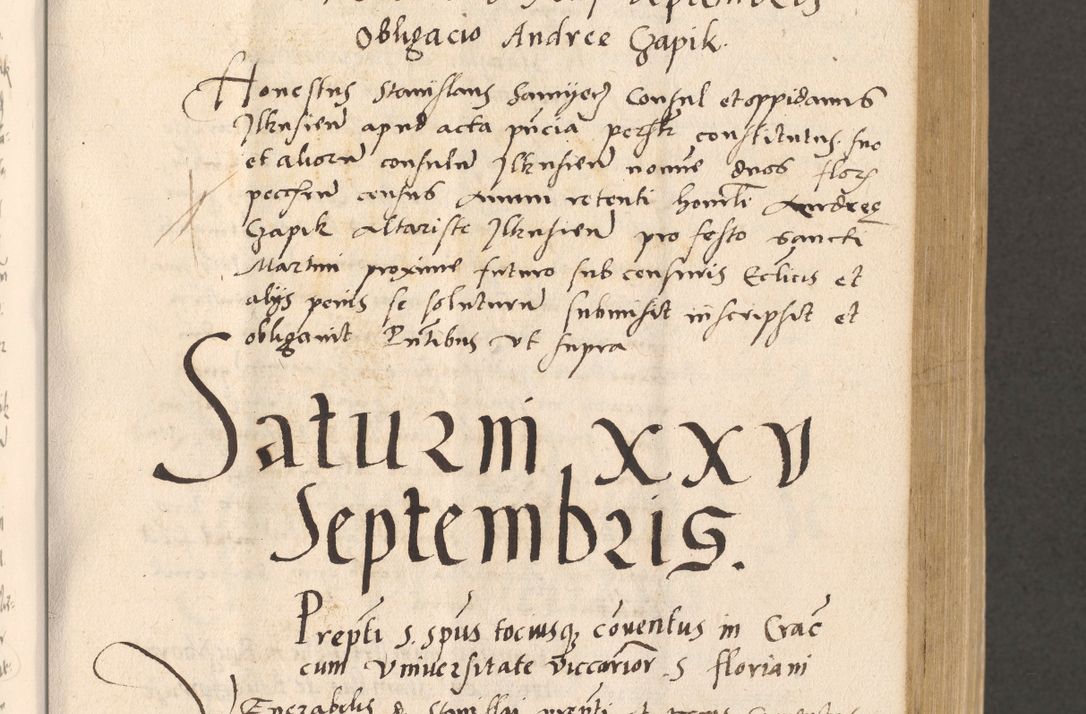 Septembris
Obligacio Andree Czapik
Honestus Stanislaus Samyecz Consul et oppidanus
Ilkusien apud acta pñcia perstr constitutus suo
et aliorũ consulũ Ilkusien nomine duos flor
pecchru census Annui retenti honorli Andree
Czapik Altariste Ilkusien pro festo sancti
Martini proxime futuro sub censuris Ecclicis et
alijs penis se soluturũ submisit inscripsit et
obligauit Pntibus vt supra
Saturni XXV
Septembris.
Prepti S. Spus tociusq conuentus in Crac
cum Vniuersitate viccariorr S Floriani
Venerabilis D Stanislai prepti et